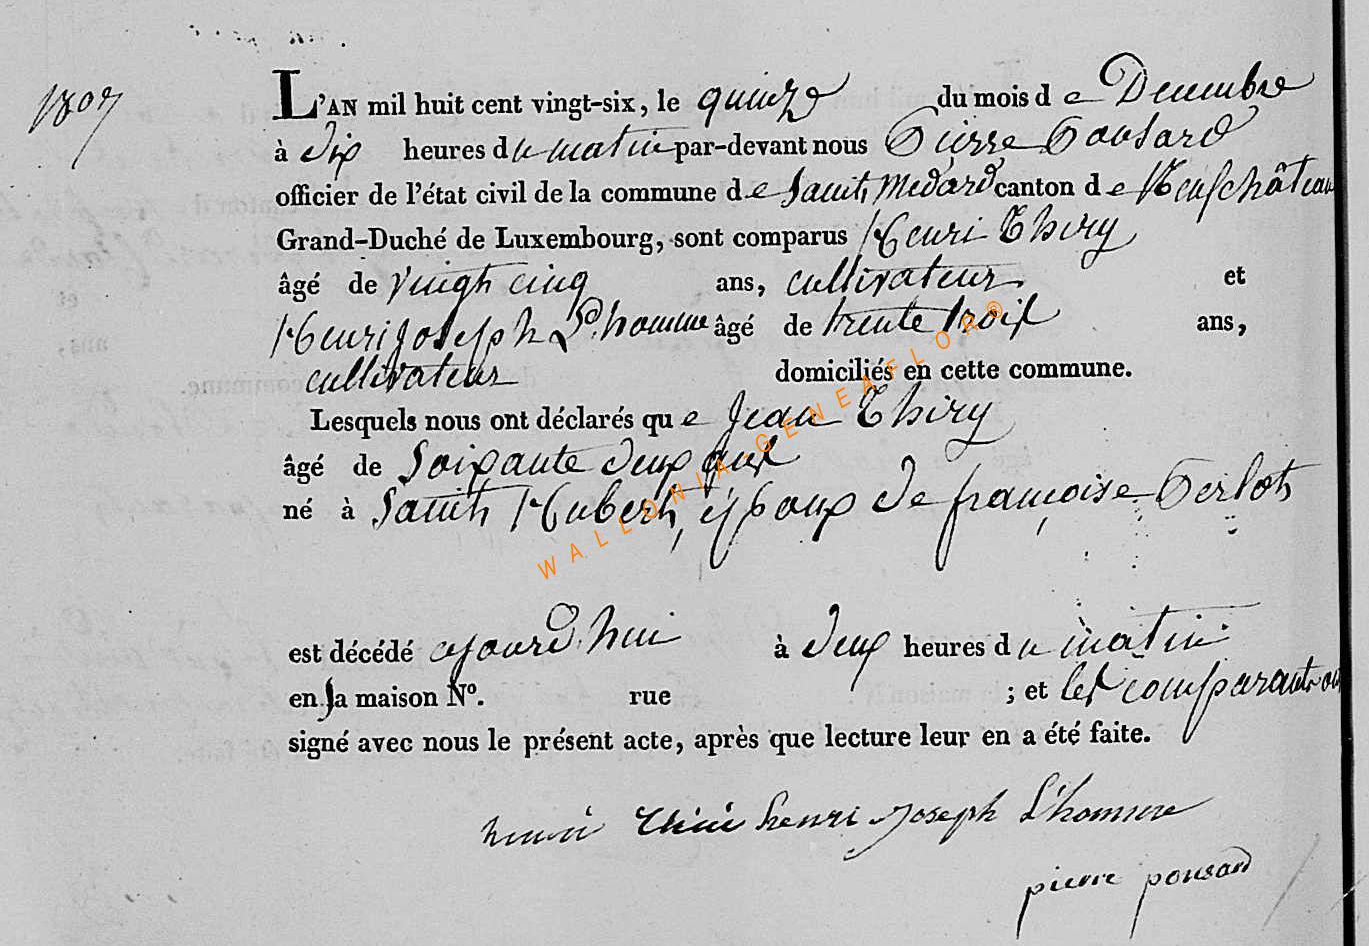 1807
L'AN mil huit cent vingt-six, le quinze du mois de Decembre
à dix heures du matin par-devant nous Pierre Ponsard
officier de l'état civil de la commune de Saint Medard canton de Neufchâteau
Grand-Duché de Luxembourg, sont comparus Henri Thiry
âgé de vingt cinq ans, cultivateur et
Henri joseph L'homme âgé de trente trois ans,
cultivateur domiciliés en cette commune.
Lesquels nous ont déclarés que Jean Thiry
âgé de Soixante deux ans
né à Saint Hubert, époux de françoise Perlot
est décédé ajourd'hui à deux heures du matin
en sa maison N°. rue ; et les comparants ont
signé avec nous le présent acte, après que lecture leur en a été faite.
henri Thiri henri Joseph L'homme
pierre ponsard
WALLONIA-GENEAFLOR©